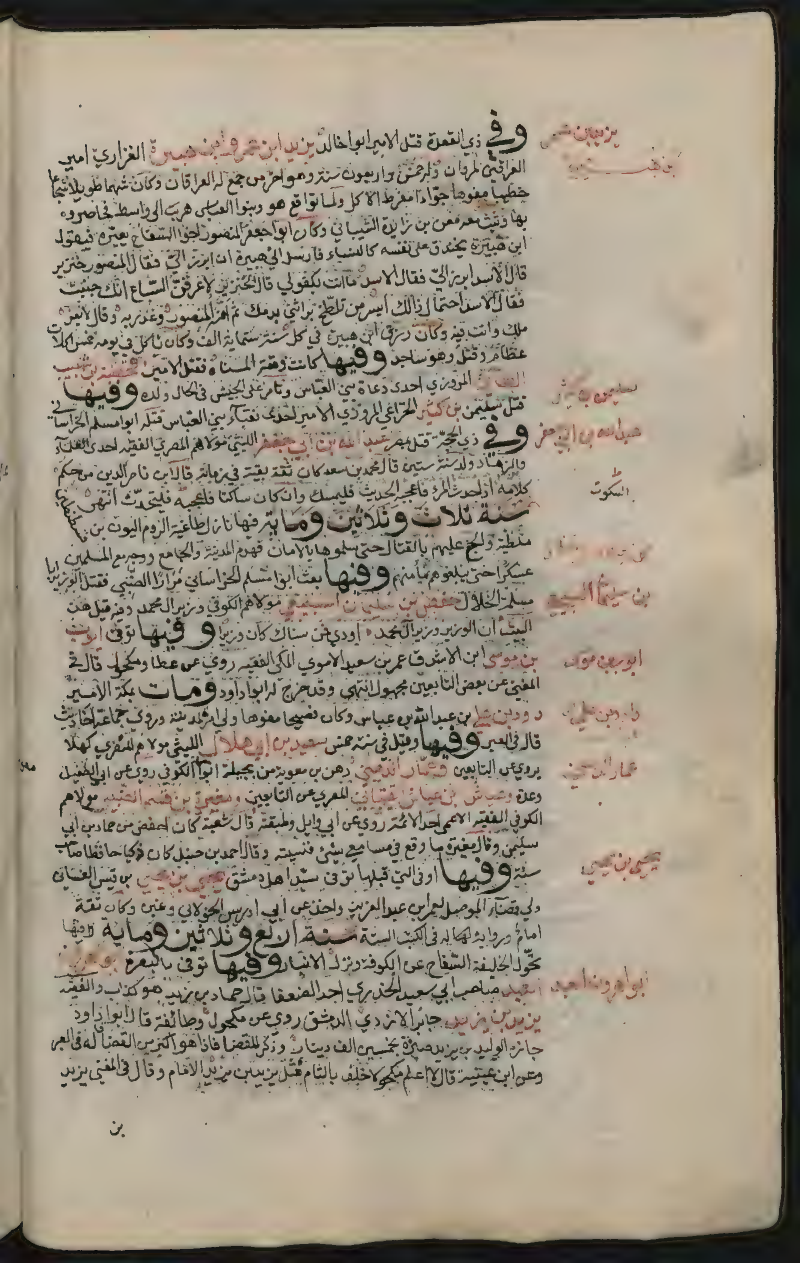 وفي ذي القعدة قتل الامير ابوا خالد يزيد ابن عمرو ابن هبيرة الفزاري امير
العراقين لمروان وله خمس واربعون سنة وهو اخر من جمع له العراقان وكان شهما طويلا شجاعا
خطيبا مفوها جوادا مفرط الاكل ولما تواقع هو وبنوا العباس هرب الى واسط فحاصروه
بها وثبت معه معن بن زايدة الشيباني وكان ابوا جعفر المنصور اخوا السفاح يعيره فيقول
ابن هبيرة يخندق على نفسه كالنساء فارسل الى هبيرة ان ابرز الي فقال المنصور خنزير
قال لاسد ابرز الي فقال الاسد ما انت بكفو لي قال الخنزير لاعرفن السباع انك جبنت
فقال الاسد احتمال ذالك ايسر من تلطخ براثني بدمك ثم امنه المنصور وغدر به وقال لا يعز
ملك وانت فيه وكان رزق ابن هبيرة في كل سنة ستماية الف وكان ياكل في يومه خمس اكلات
عظام وقتل وهو ساجد وفيها كانت وقعة المسناه فقتل الامير قحطبة بن شبيب
الطائي المروزي احدى دعاة بني العباس وتامر على الجيش في الحال ولده وفيها
قتل سليمن بن كثير الخزاعي المروزي الامير احدى نقباء بني العباس قتله ابوا مسلم الخراساني
وفي ذي الحجة قتل بمصر عبد الله بن ابي جعفر الليثي مولاهم المصري الفقيه احدى العلماء
والزهاد ولد سنة ستين قال محمد بن سعد كان ثقة بقية في زمانه قال ابن ناصر الدين من حكم
كلامه اذا حدث المرء فاعجبه الحديث فليمسك وان كان ساكتا فاعجبه فليتحدث انتهى
سنة ثلاث وثلاثين وماية فيها نازل طاغية الروم اليون بن قسطنطين
ملطية والح عليهم بالقتال حتى سلموها بالامان فهدم المدينة والجامع ووجه مع المسلمين
عسكرا حتى يبلغوهم مامنهم وفيها بعث ابوا مسلم الخراساني مرارا الضبي فقتل الوزير ابا
سلمة الخلال حفص بن سليمان السبيعي مولاهم الكوفي وزير ال محمد وفيه قيل هذا
البيت ان الوزير وزير ال محمد اودى فمن يشناك كان وزيرا وفيها توفي ايوب
بن موسى ابن الاشدق عمر بن سعيد الاموي المكي الفقيه روى عن عطا ومكحول قال في
المغني عن بعض التابعين مجهول انتهى وقد خرج له ابوا داود ومات بمكة الامير
داود بن علي بن عبد الله بن عباس وكان فصيحا مفوها ولي امرة المدينة وروى جماعة احاديث
قاله في العبر وفيها وقيل في سنة خمس سعيد بن ابي هلال الليثي مولاهم المصري كهلا
يروي عن التابعين وعمار الدهني دهن بن معوية من بجيلة ابوا الكوفي روى عن ابي الطفيل
وعدة وعياش بن عباس القتباني المصري عن التابعين ومغيرة بن مقسم الضبي مولاهم
الكوفي الفقيه الاعمى احد الائمة روى عن ابي وايل وطبقته قال شعبة كان احفظ من حماد بن ابي
سليمن وقال مغيرة ما وقع في مسامعي شيئ فنسيته وقال احمد بن حنبل كان ذكيا حافظا صاحب
سنة وفيها او في التي قبلها توفي سيد اهل دمشق يحيى بن يحيى بن قيس الغساني
ولي قضاء الموصل لعمر ابن عبد العزيز واخذ عن ابي ادريس الخولاني وغيره وكان ثقة
امام ورواية له في الكتب الستة سنة اربع وثلاثين وماية وفيها
تحول الخليفة السفاح عن الكوفة ونزل الانبار وفيها توفي بالبصرة ابو هرون
العبيد صاحب ابي سعيد الخدري احد الضعفا قال حماد بن زيد هو كذاب والفقيه
يزيد بن يزيد جابر الازدي الدمشقي روى عن مكحول وطائفة قال ابوا داود
جازه الوليد بن يزيد مرة بخمسين الف دينار وذكر للقضا فاذا هو اكبر من القضا قاله في العبر
وعن ابن عيينة قال لا اعلم مكحولا خلف بالشام مثل يزيد بن يزيد الامام وقال في المغني يزيد
بن
السكوت
سليمن بن كثير
عبد الله بن ابي جعفر
بن سليمان السبيعي
ايوب بن موسى
داود بن علي
يحيى بن يحيى
ابوا هرون العبيد